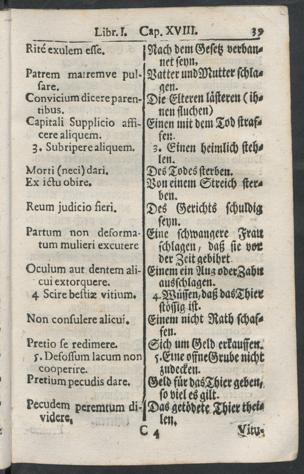 Libr. I. Cap. XVIII. 39
Rité exulem esse.
Patrem matremve pul-
sare.
Convicium dicere paren-
tibus.
Capitali Supplicio affi-
cere aliquem.
3. Subripere aliquem.
Morti (neci) dari.
Ex ictu obire.
Reum judicio fieri.
Partum non deforma-
tum mulieri excutere
Oculum aut dentem ali-
cui extorquere.
4 Scire bestiæ vitium.
Non consulere alicui.
Pretio se redimere.
5. Defossum lacum non
cooperire.
Pretium pecudis dare.
Pecudem peremtum di-
videre.
Nach dem Gesetz verban-
net seyn.
Vatter und Mutter schla-
gen.
Die Elteren lästeren (ih-
nen fluchen)
Einen mit dem Tod straf-
fen.
3. Einen heimlich steh-
len.
Des Todes sterben.
Von einem Streich ster-
ben.
Des Gerichts schuldig
seyn.
Eine schwangere Frau
schlagen, daß sie vor
der Zeit gebihrt
Einem ein Aug oder Zahn
ausschlagen.
4. Wüssen, daß das Thier
stössig ist.
Einem nicht Rath schaf-
fen.
Sich um Geld erkauffen.
5. Eine offne Grube nicht
zudecken.
Geld für das Thier geben,
so viel es gilt.
Das getödete Thier thei-
len.
C 4
Vitu-